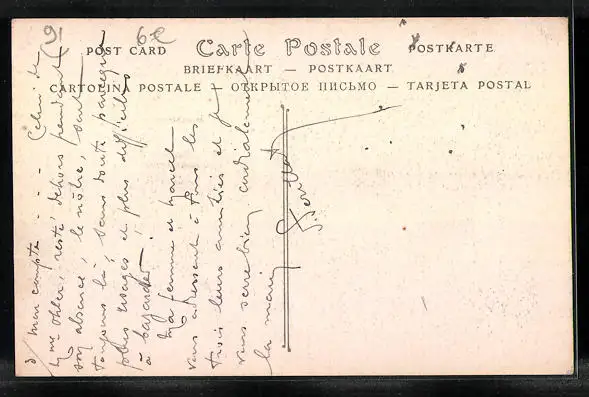 91 6e
POST CARD Carte Postale POSTKARTE
BRIEFKAART — POSTKAART
CARTOLINA POSTALE — ОТКРЫТОЕ ПИСЬМО — TARJETA POSTAL
mon compte . . . Celui de
Mme resté dehors pendant
son absence, le nôtre, sont
toujours là, sans doute
plus sages et plus difficiles
à !
Ma femme et Marcel
vous adressent à tous les
trois leurs amitiés et je
vous serre bien cordialement
la main